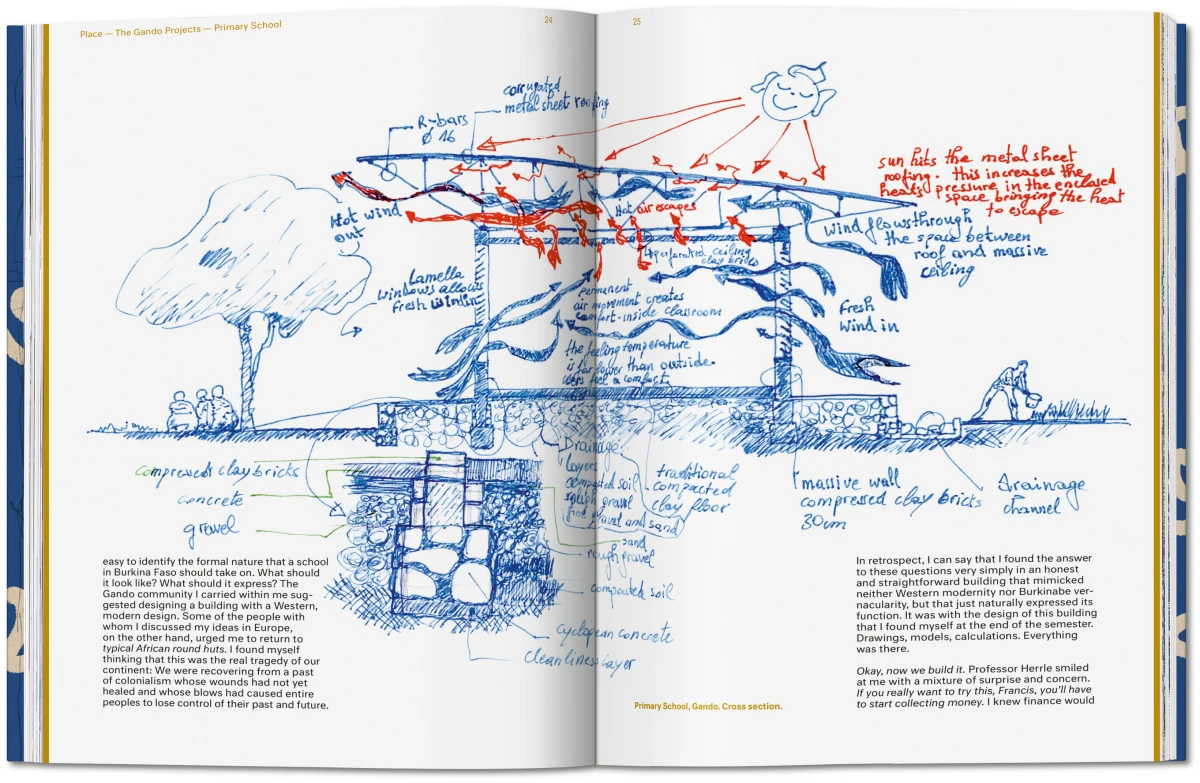 Place — The Gando Projects — Primary School
24
25
corrugated
metal sheet roofing
R-bars
Ø 16
sun hits the metal sheet
roofing. this increases the
heats pressure in the enclosed
space bringing the heat
to escape
Hot wind
out
Hot air escapes
Wind flows through
the space between
roof and massive
ceiling
perforated ceiling
clay bricks
Lamella
windows allows
fresh wind in
permanent
air movement creates
comfort inside classroom
Fresh
Wind in
the feeling temperature
is far lower than outside.
users feel a comfort.
compressed clay bricks
concrete
gravel
Drainage:
layers
compacted soil
gravel
fine gravel and sand
traditional
compacted
clay floor
massive wall
compressed clay bricks
30cm
drainage
channel
sand
rough gravel
compacted soil
cyclopean concrete
cleanliness layer
easy to identify the formal nature that a school
in Burkina Faso should take on. What should
it look like? What should it express? The
Gando community I carried within me sug-
gested designing a building with a Western,
modern design. Some of the people with
whom I discussed my ideas in Europe,
on the other hand, urged me to return to
typical African round huts. I found myself
thinking that this was the real tragedy of our
continent: We were recovering from a past
of colonialism whose wounds had not yet
healed and whose blows had caused entire
peoples to lose control of their past and future.
Primary School, Gando. Cross section.
In retrospect, I can say that I found the answer
to these questions very simply in an honest
and straightforward building that mimicked
neither Western modernity nor Burkinabe ver-
nacularity, but that just naturally expressed its
function. It was with the design of this building
that I found myself at the end of the semester.
Drawings, models, calculations. Everything
was there.
Okay, now we build it. Professor Herrle smiled
at me with a mixture of surprise and concern.
If you really want to try this, Francis, you'll have
to start collecting money. I knew finance would